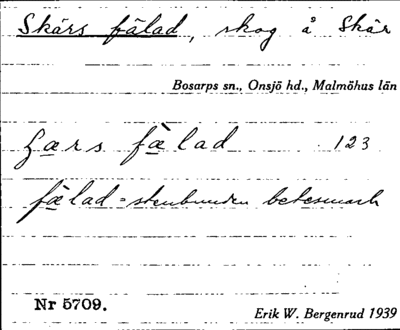 Skärs fälad, skog å Skär
Bosarps sn., Onsjö hd., Malmöhus län
fælad 123
fælad = stenbunden betesmark
Nr 5709.
Erik W. Bergenrud 1939